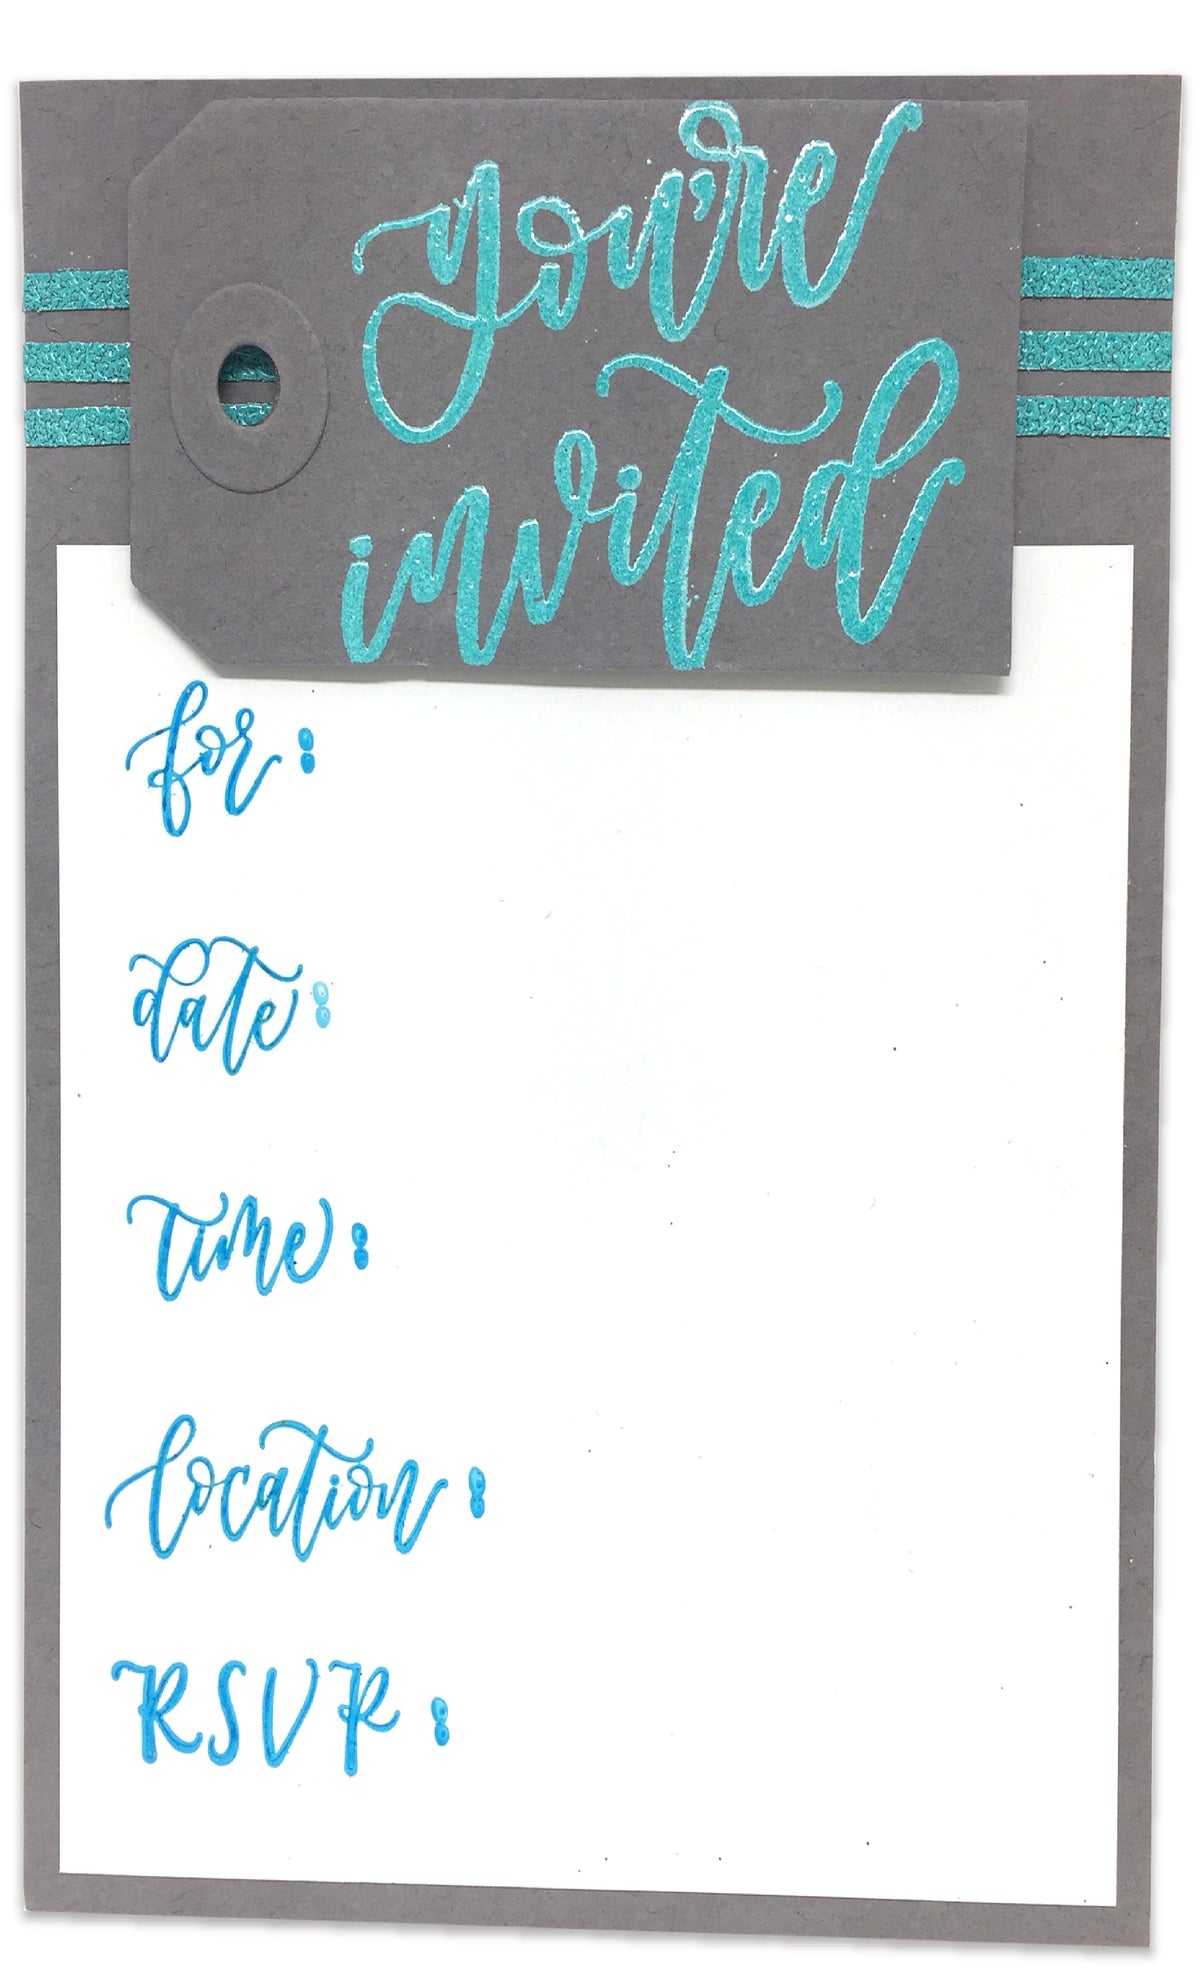 you're
invited
for:
date:
time:
location:
RSVP: